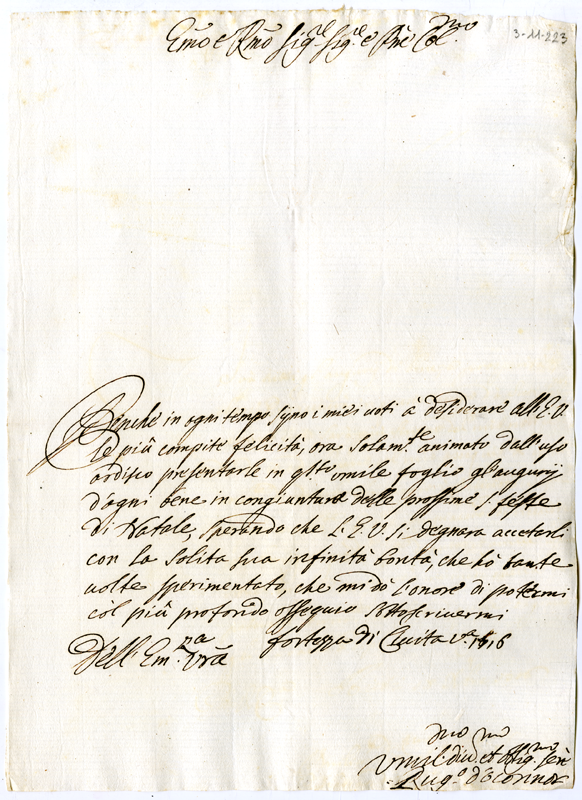 Emo e Rmo Sig.re Sig.re e Pne Col.mo
3-11-223
Benche in ogni tempo siano i miei uoti à desiderare all E.V.
le più compite felicità, ora solam.te animato dall' uso
ardisco presentarle in q.sto vmile foglio gl'augurij
d'ogni bene in congiuntura delle prossime S. feste
di Natale, sperando che L'E.V. si degnara accetarli
con la solita sua infinità bontà, che hò tante
uolte sperimentato, che mi dò l'onore di potermi
col più profondo ossequio sottoscriuermi
Dell' Em.na Vra fortezza di Ciuita V.a
Vmil.mo diu.mo et oblig.mo ser
Rug.o d'Oconnor